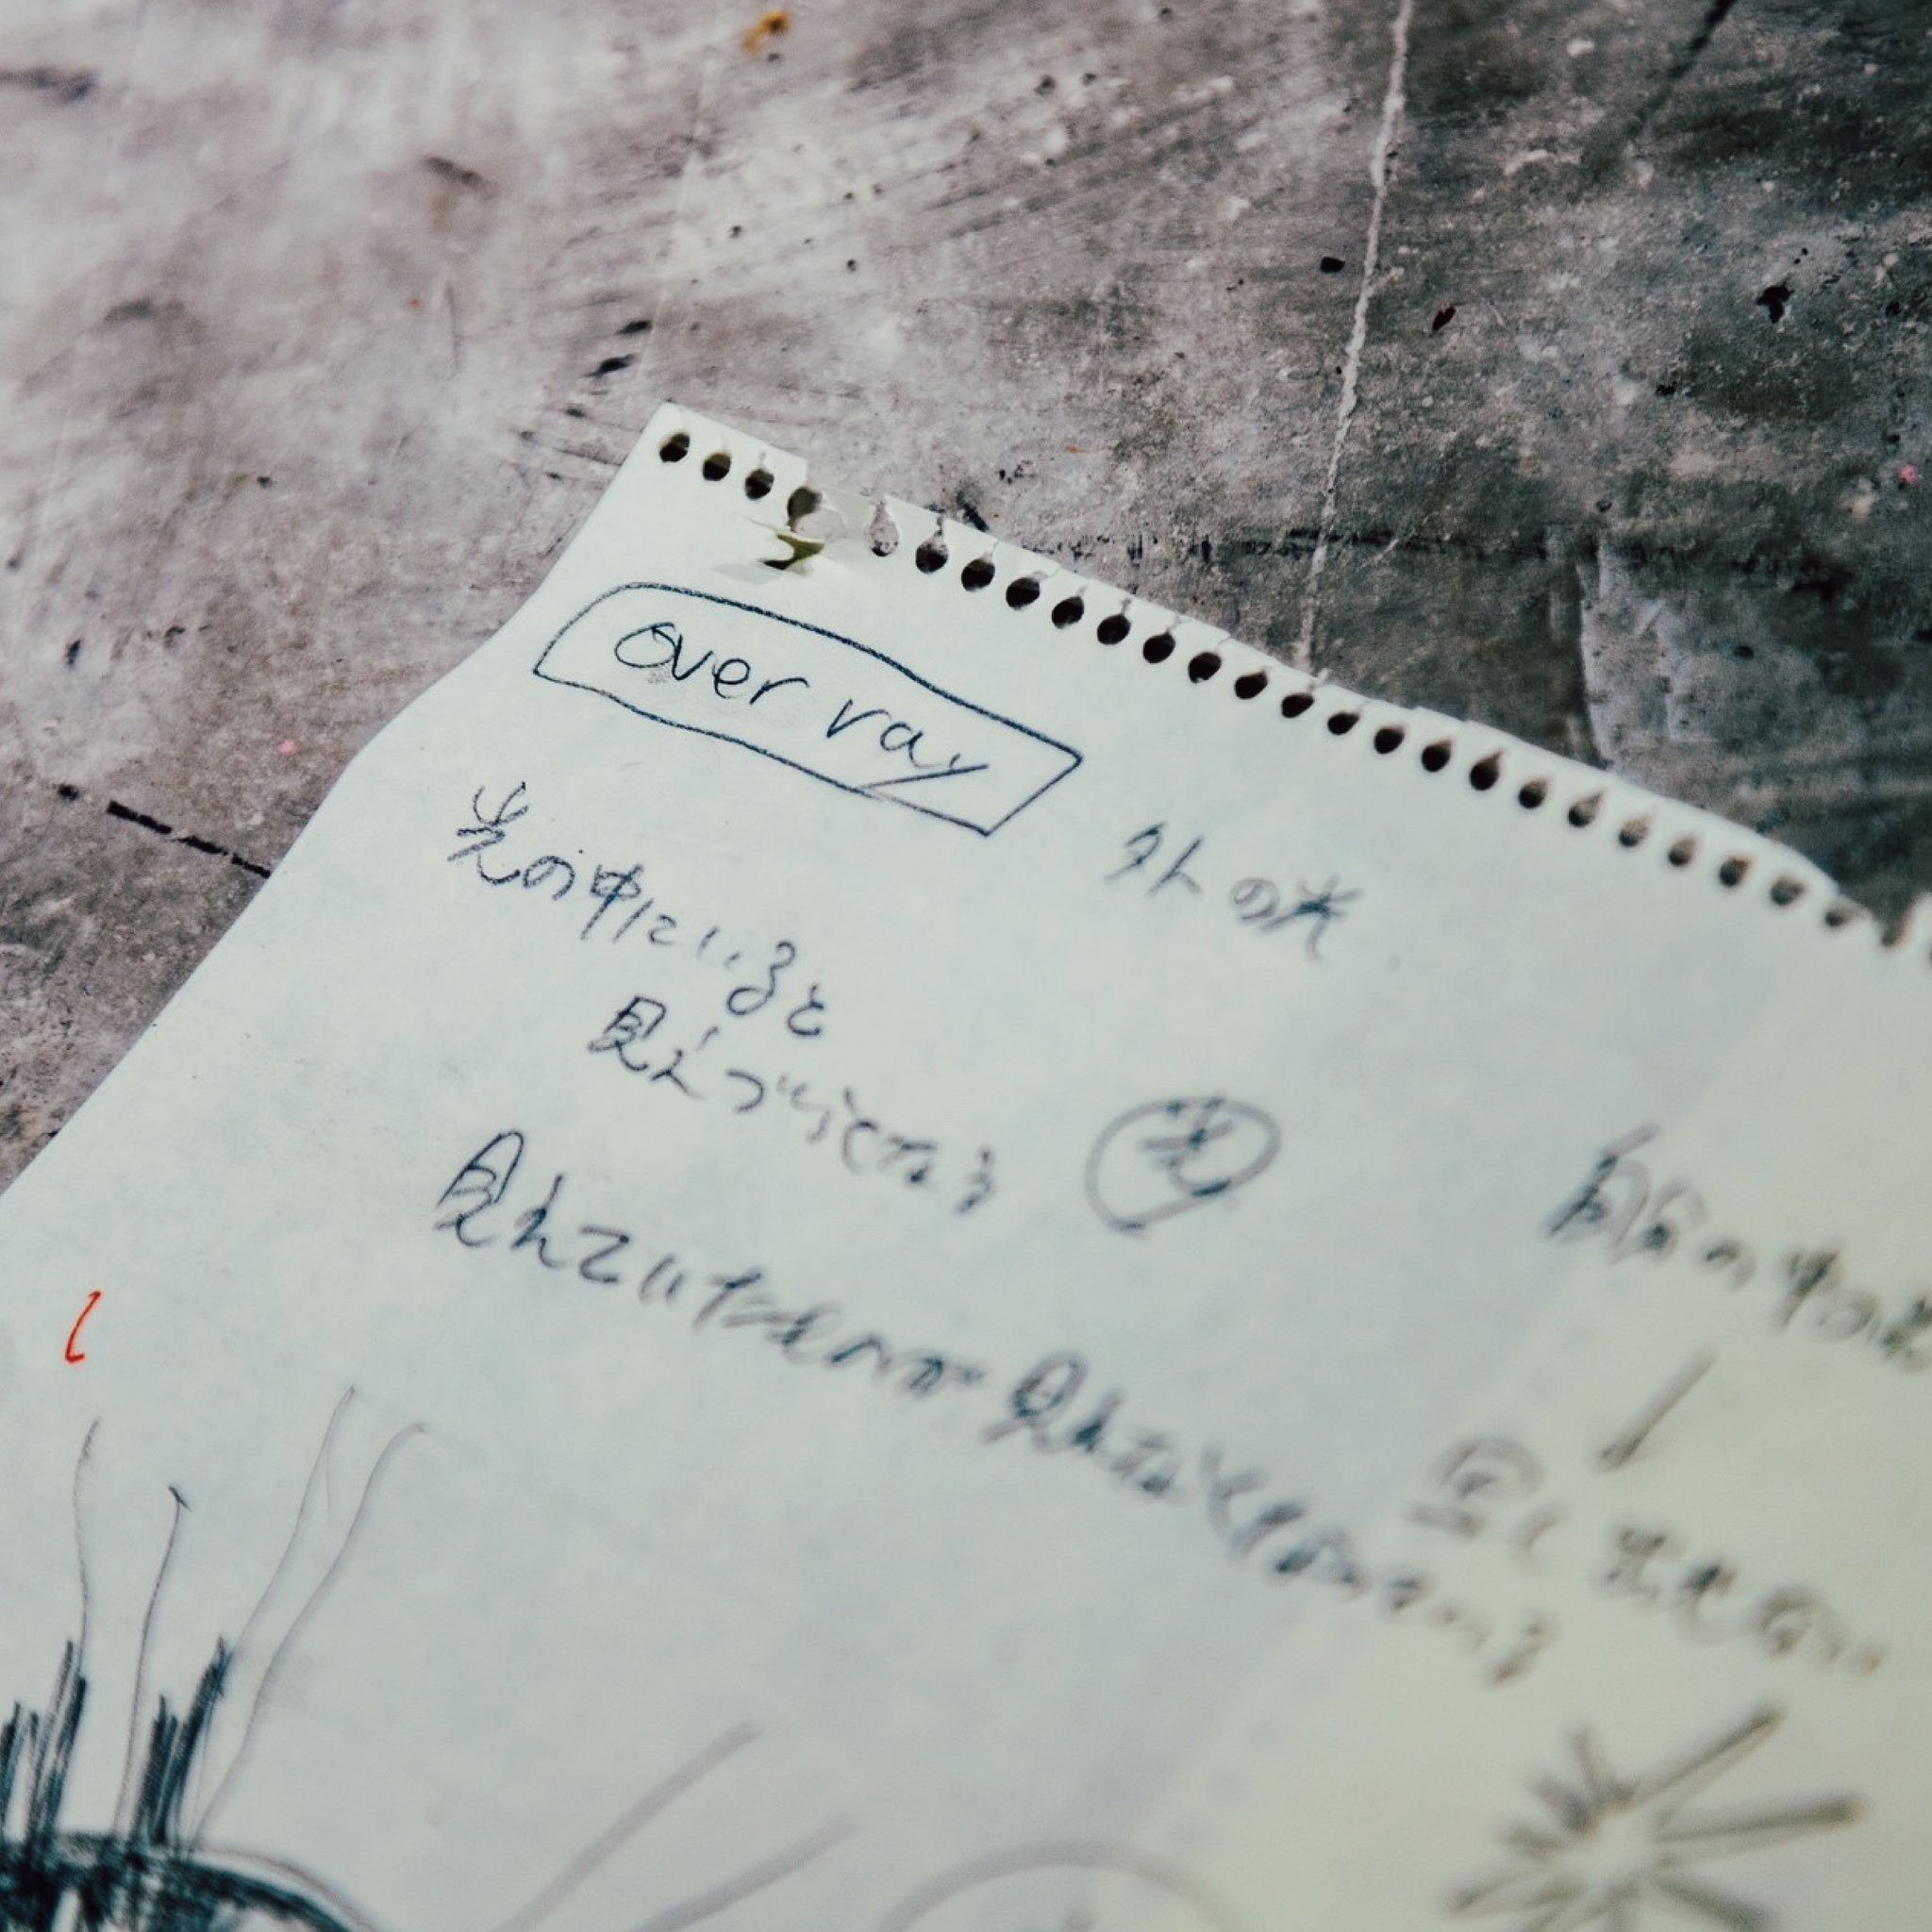 over ray
外の光
光の中にいると
見えづらくなる
光
見えていたものが 見えなくなって
自分の中の